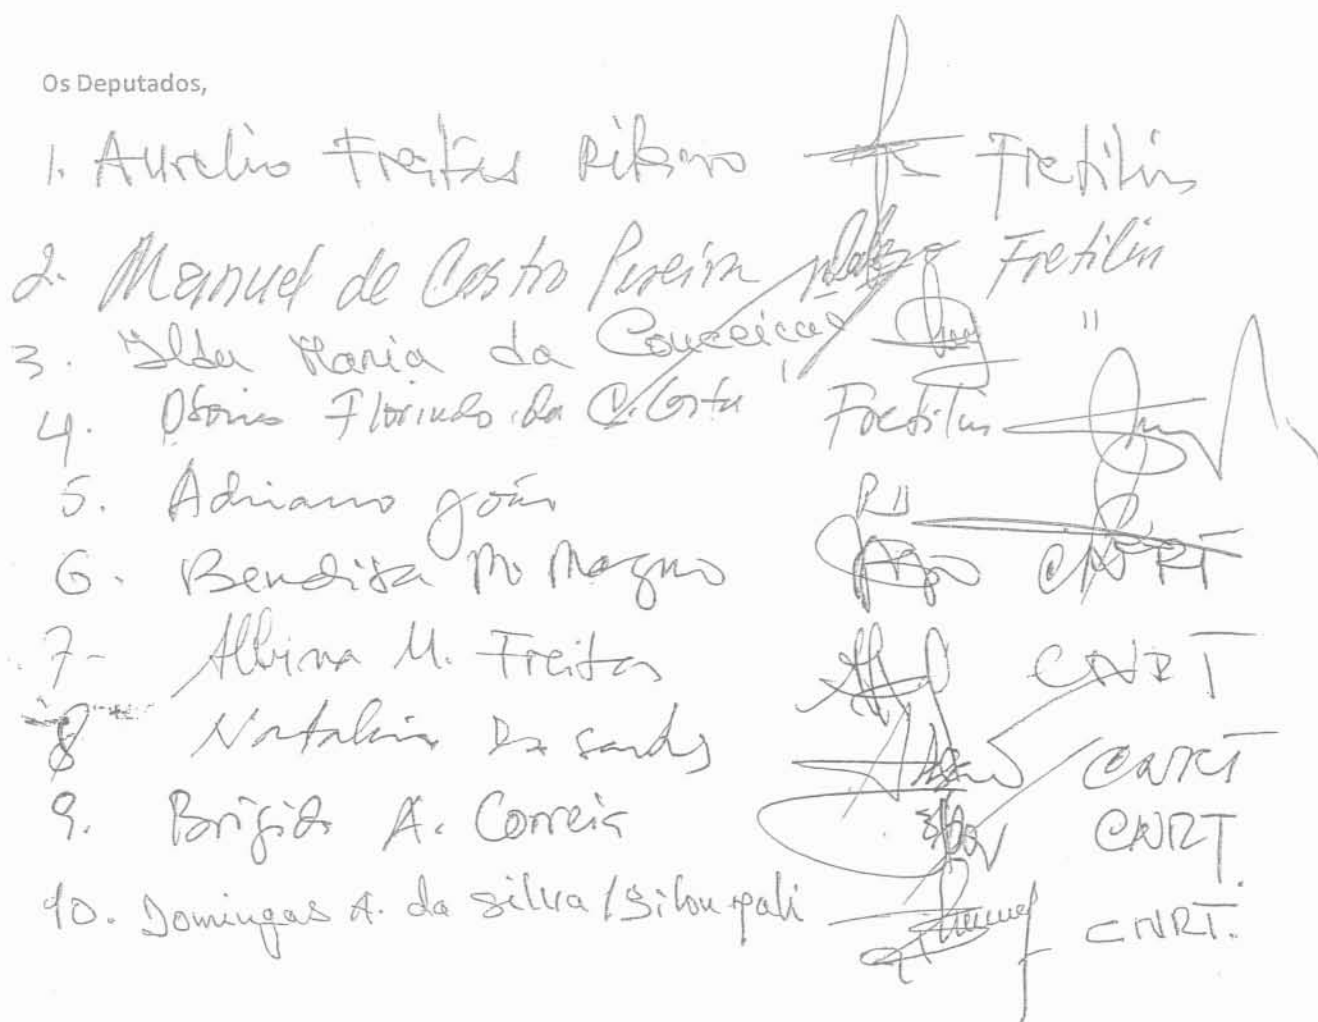 Os Deputados,
1. Aurelio Freitas Ribeiro Fretilin
2. Manuel de Castro Pereira Fretilin
3. Ilda Maria da Conceicao "
4. Florindo da C. Costa Fretilin
5. Adriano João
6. Bendita M. Magno CNRT
7- Albina M. Freitas CNRT
8 Natalina Dos Santos CNRT
9. Brigida A. Correia CNRT
10. Domingas A. da Silva / Bilou mali CNRT.